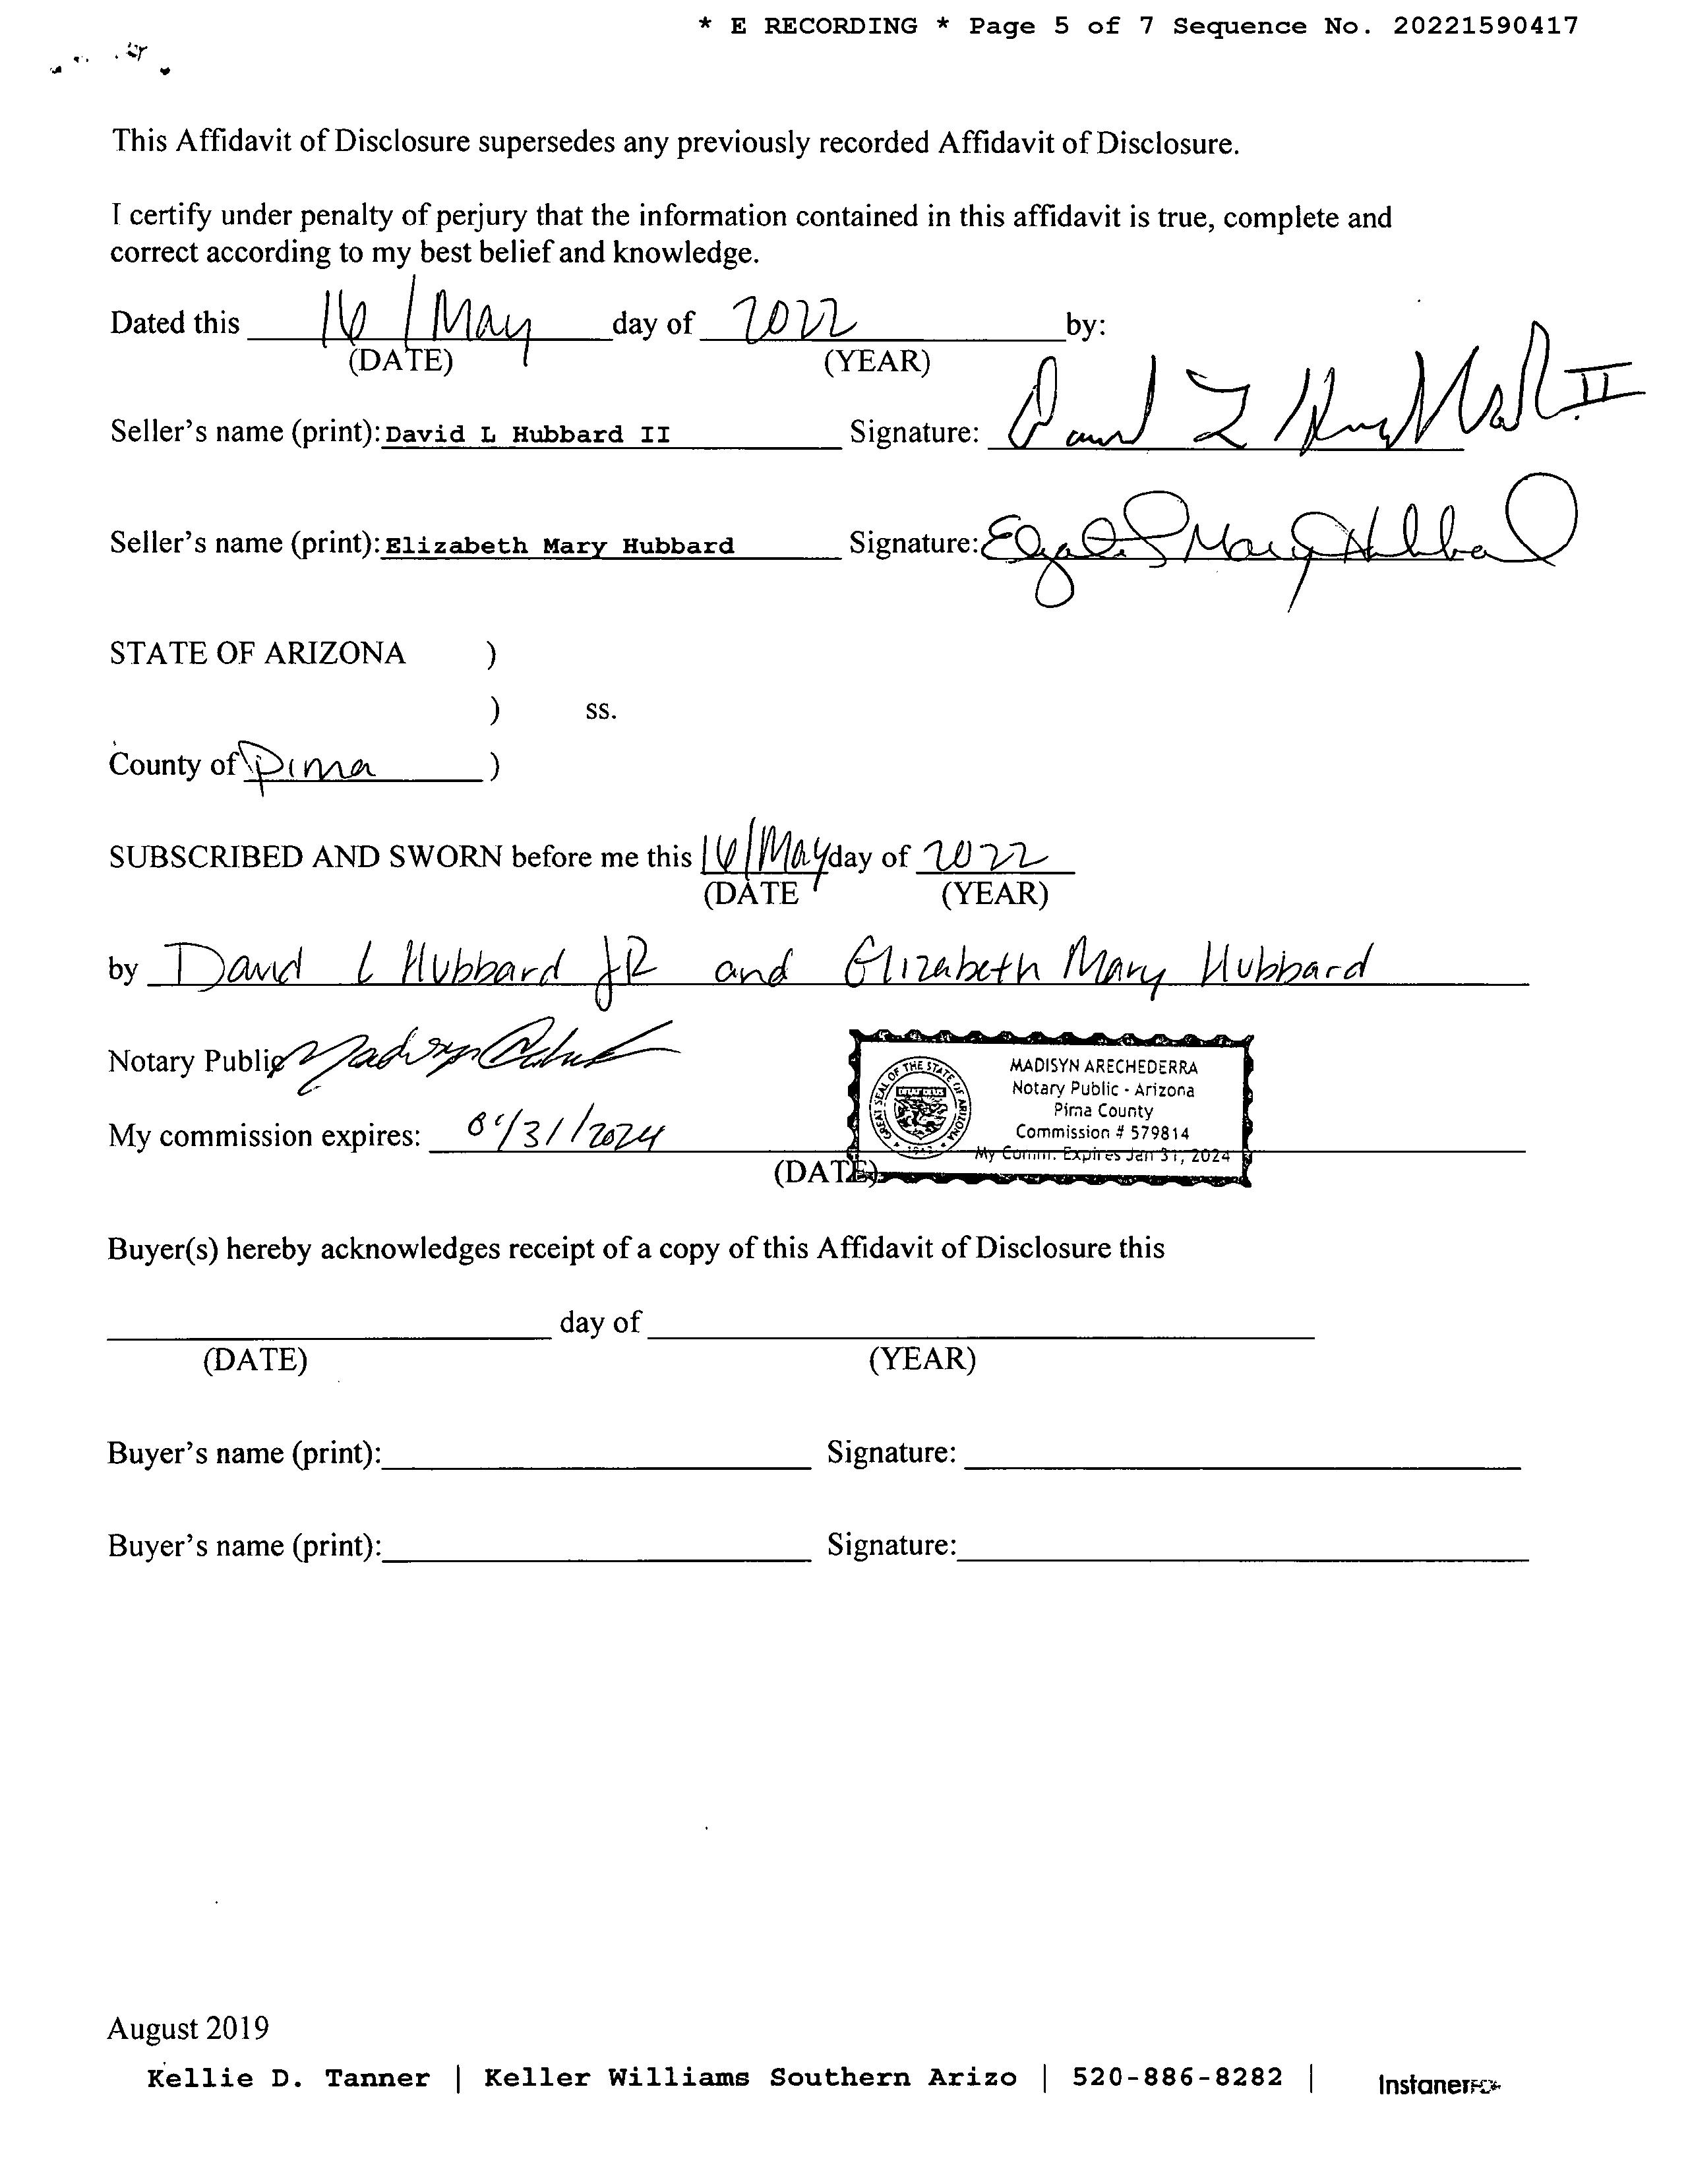 * E RECORDING * Page 5 of 7 Sequence No. 20221590417
This Affidavit of Disclosure supersedes any previously recorded Affidavit of Disclosure.
I certify under penalty of perjury that the information contained in this affidavit is true, complete and
correct according to my best belief and knowledge.
Dated this 16/May day of 2022 by:
(DATE) (YEAR)
Seller's name (print): David L Hubbard II Signature: David L Hubbard II
Seller's name (print): Elizabeth Mary Hubbard Signature: Elizabeth Mary Hubbard
STATE OF ARIZONA )
) ss.
County of Pima )
SUBSCRIBED AND SWORN before me this 16/May day of 2022
(DATE (YEAR)
by David L Hubbard JR and Elizabeth Mary Hubbard
Notary Public
MADISYN ARECHEDERRA
Notary Public - Arizona
Pima County
Commission # 579814
My Comm. Expires Jan 31, 2024
GREAT SEAL OF THE STATE OF ARIZONA
1912
My commission expires: 01/31/2024
(DATE)
Buyer(s) hereby acknowledges receipt of a copy of this Affidavit of Disclosure this
day of
(DATE) (YEAR)
Buyer's name (print): Signature:
Buyer's name (print): Signature:
August 2019
Kellie D. Tanner | Keller Williams Southern Arizo | 520-886-8282 |